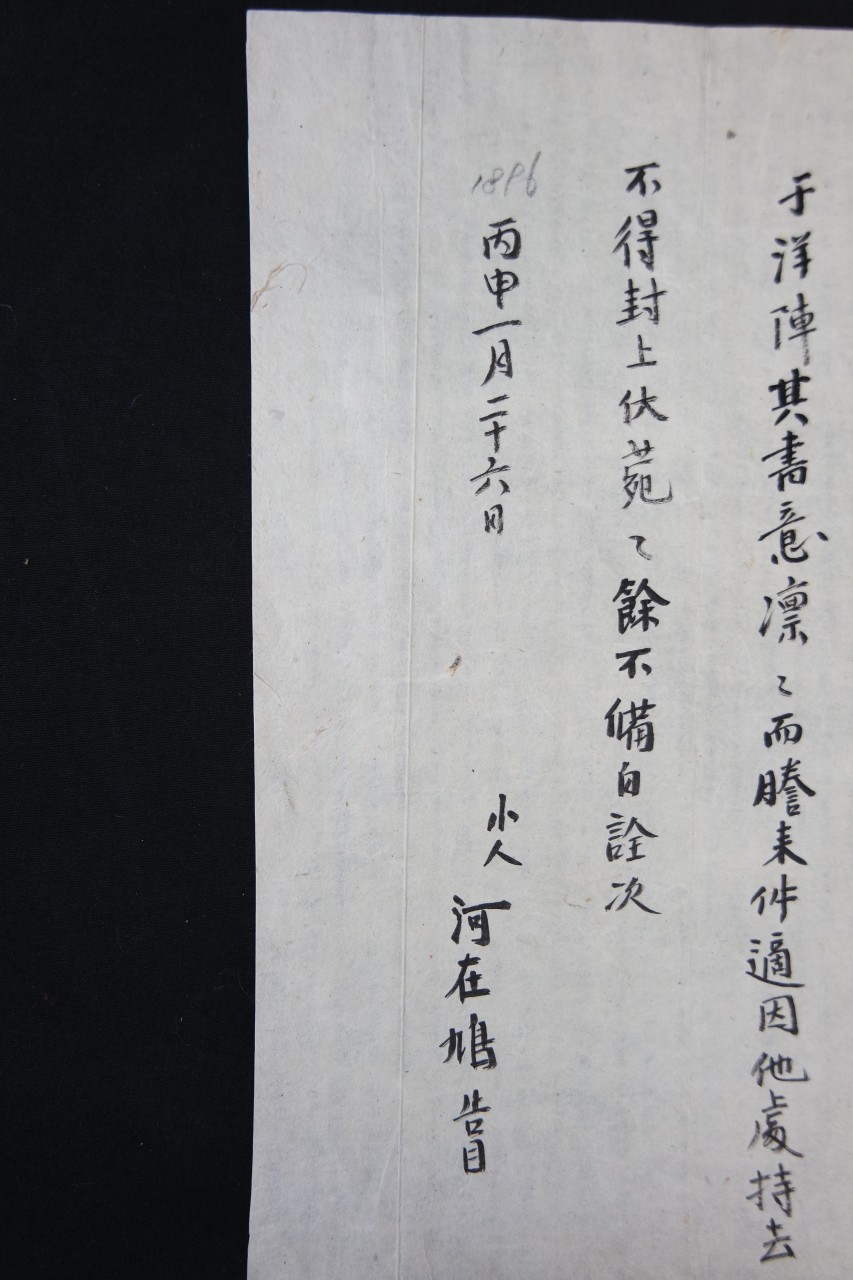 于洋陣其書意凛〻而謄来件適因他處持去
不得封上伏菀〻餘不備自詮次
1896
丙申一月二十六日
小人 河在鳩 告目